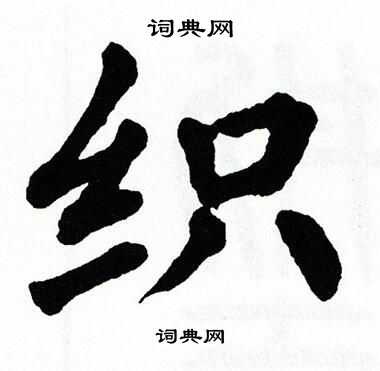 词典网
织
词典网